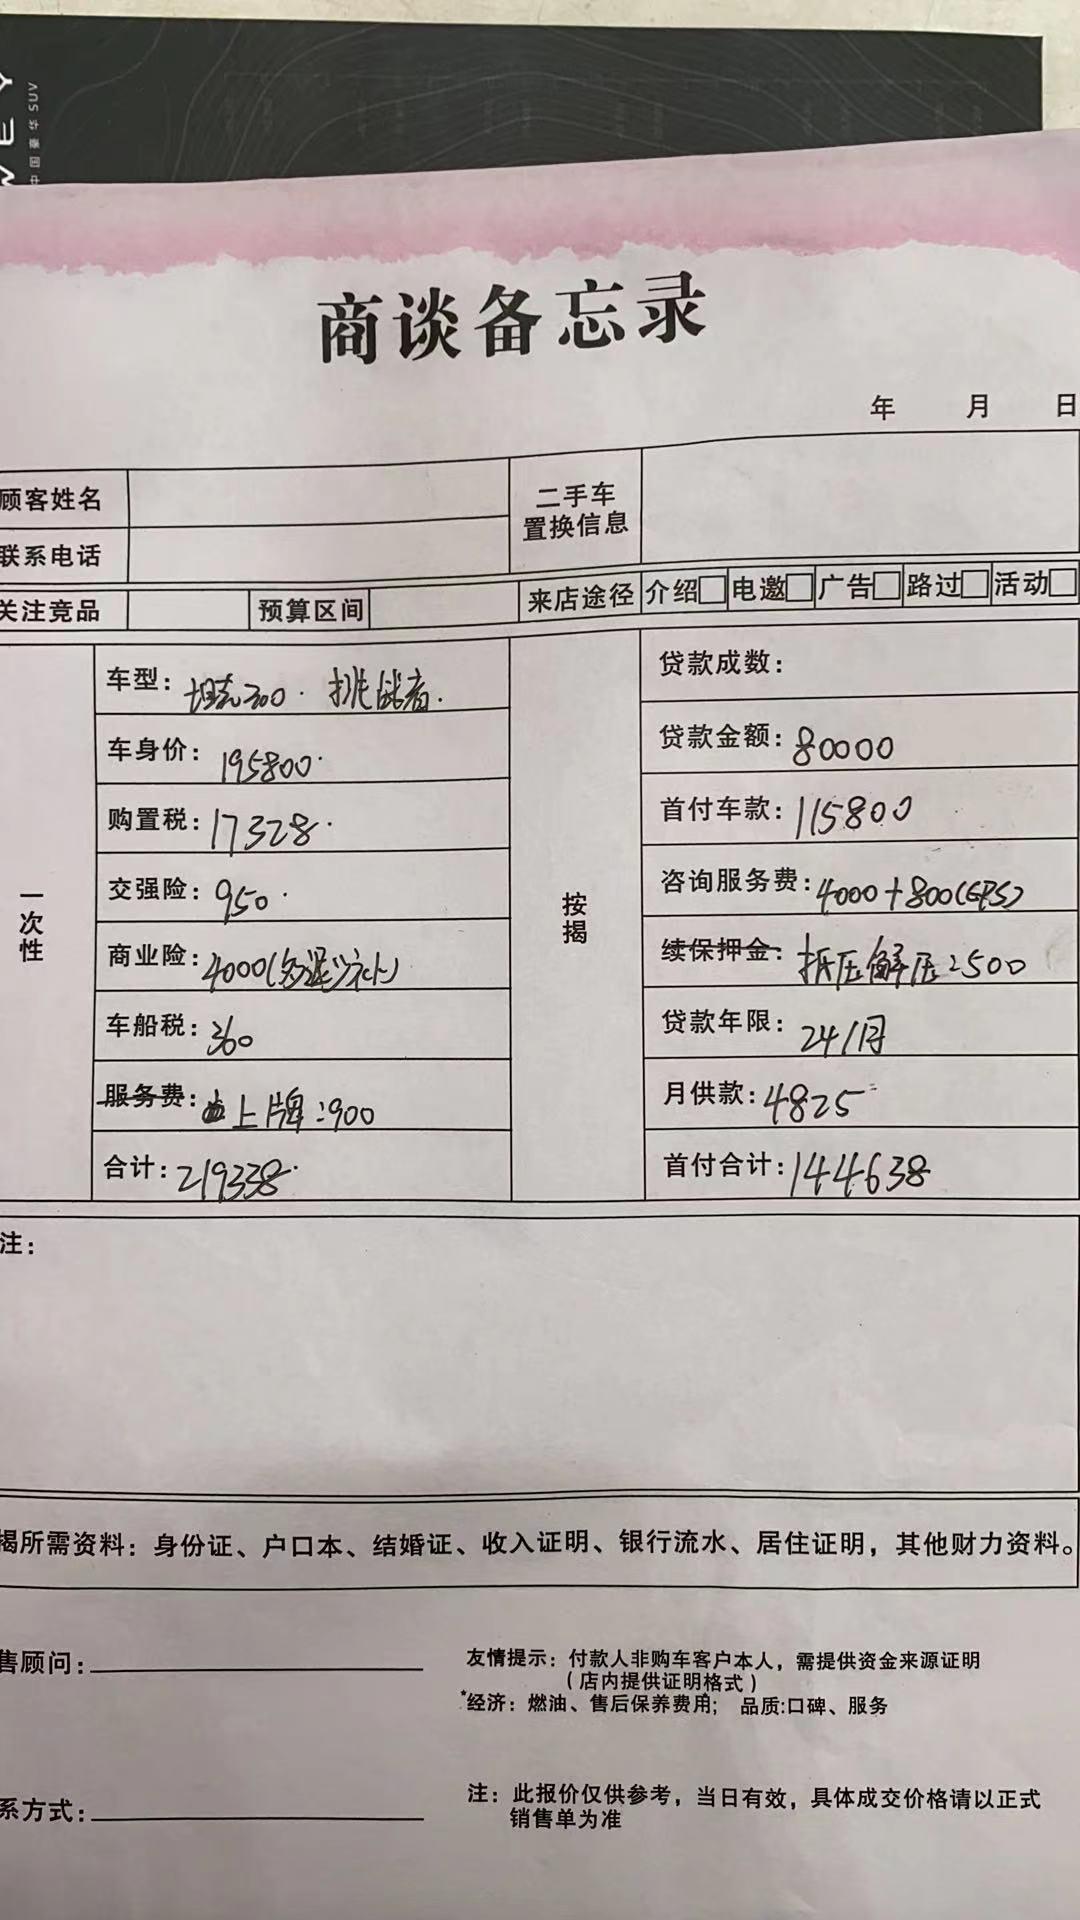 中国豪华SUV
商谈备忘录
年 月 日
顾客姓名
二手车
置换信息
联系电话
关注竞品 预算区间 来店途径 介绍□ 电邀□ 广告□ 路过□ 活动□
一次性
车型：坦克300. 挑战者.
车身价：195800.
购置税：17328.
交强险：950.
商业险：4000(多退少补)
车船税：360
服务费：上牌：900
合计：219338.
按揭
贷款成数：
贷款金额：80000
首付车款：115800
咨询服务费：4000+800(GPS)
续保押金：抵压解压：500
贷款年限：24/月
月供款：4825
首付合计：144638
注：
揭所需资料：身份证、户口本、结婚证、收入证明、银行流水、居住证明，其他财力资料。
售顾问：
友情提示：付款人非购车客户本人，需提供资金来源证明
（店内提供证明格式）
*经济：燃油、售后保养费用; 品质:口碑、服务
系方式：
注：此报价仅供参考，当日有效，具体成交价格请以正式
销售单为准